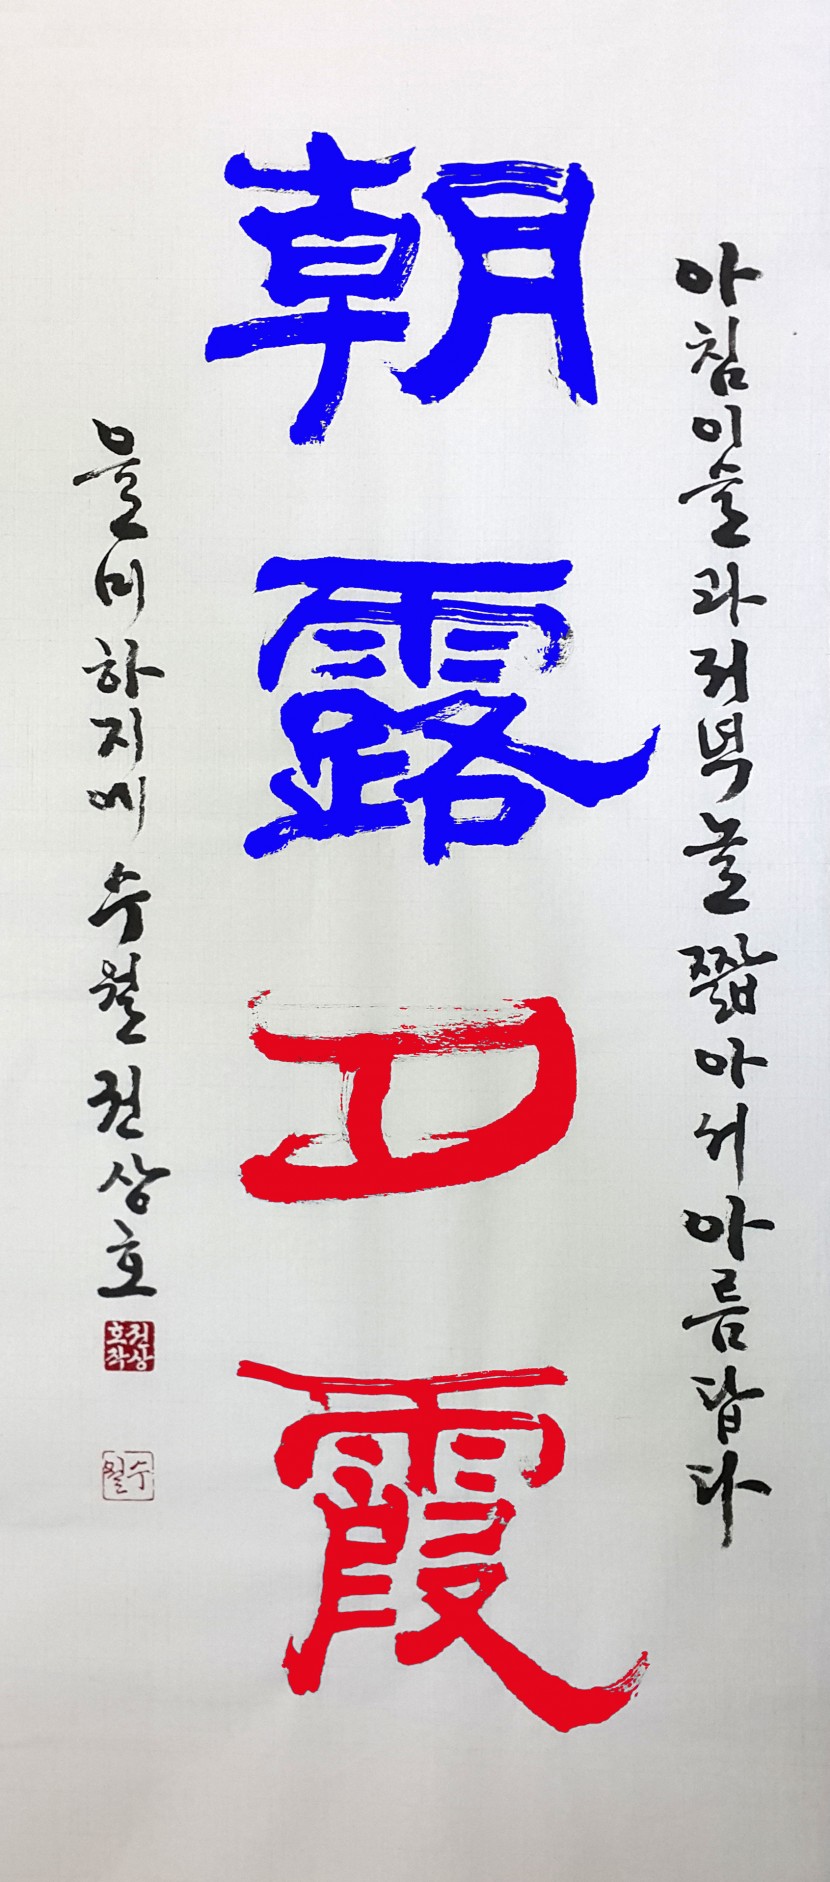 아침이슬과저녁놀 짧아서아름답다
朝露夕霞
을미하지에 수월권상호
권상호작
수월